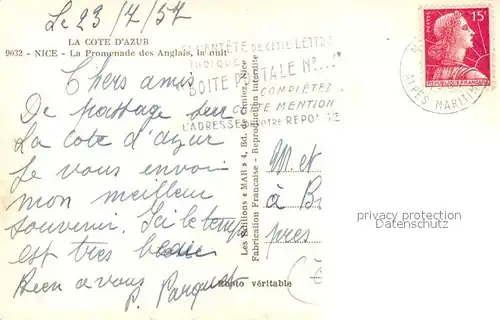 Le 23/7/57
LA COTE D'AZUR
9032 - NICE - La Promenade des Anglais, la nuit
Chers amis
De passage sur
La cote d'azur
Je vous envoi
mon meilleur
souvenir. Ici le temps
est tres
Bien a vous P. Parquet
SI L'ENTÊTE DE CETTE LETTRE
INDIQUE
BOITE POSTALE N°...
COMPLÉTEZ
CETTE MENTION
L'ADRESSE DE VOTRE REPONSE
Les Editions « MAR » 4, Bd. de Cimiez, Nice
Fabrication Française - Reproduction interdite
Photo véritable
POSTES
15F
REPUBLIQUE FRANCAISE
ALPES MARITIM
M. et
à
pres
privacy protection
Datenschutz